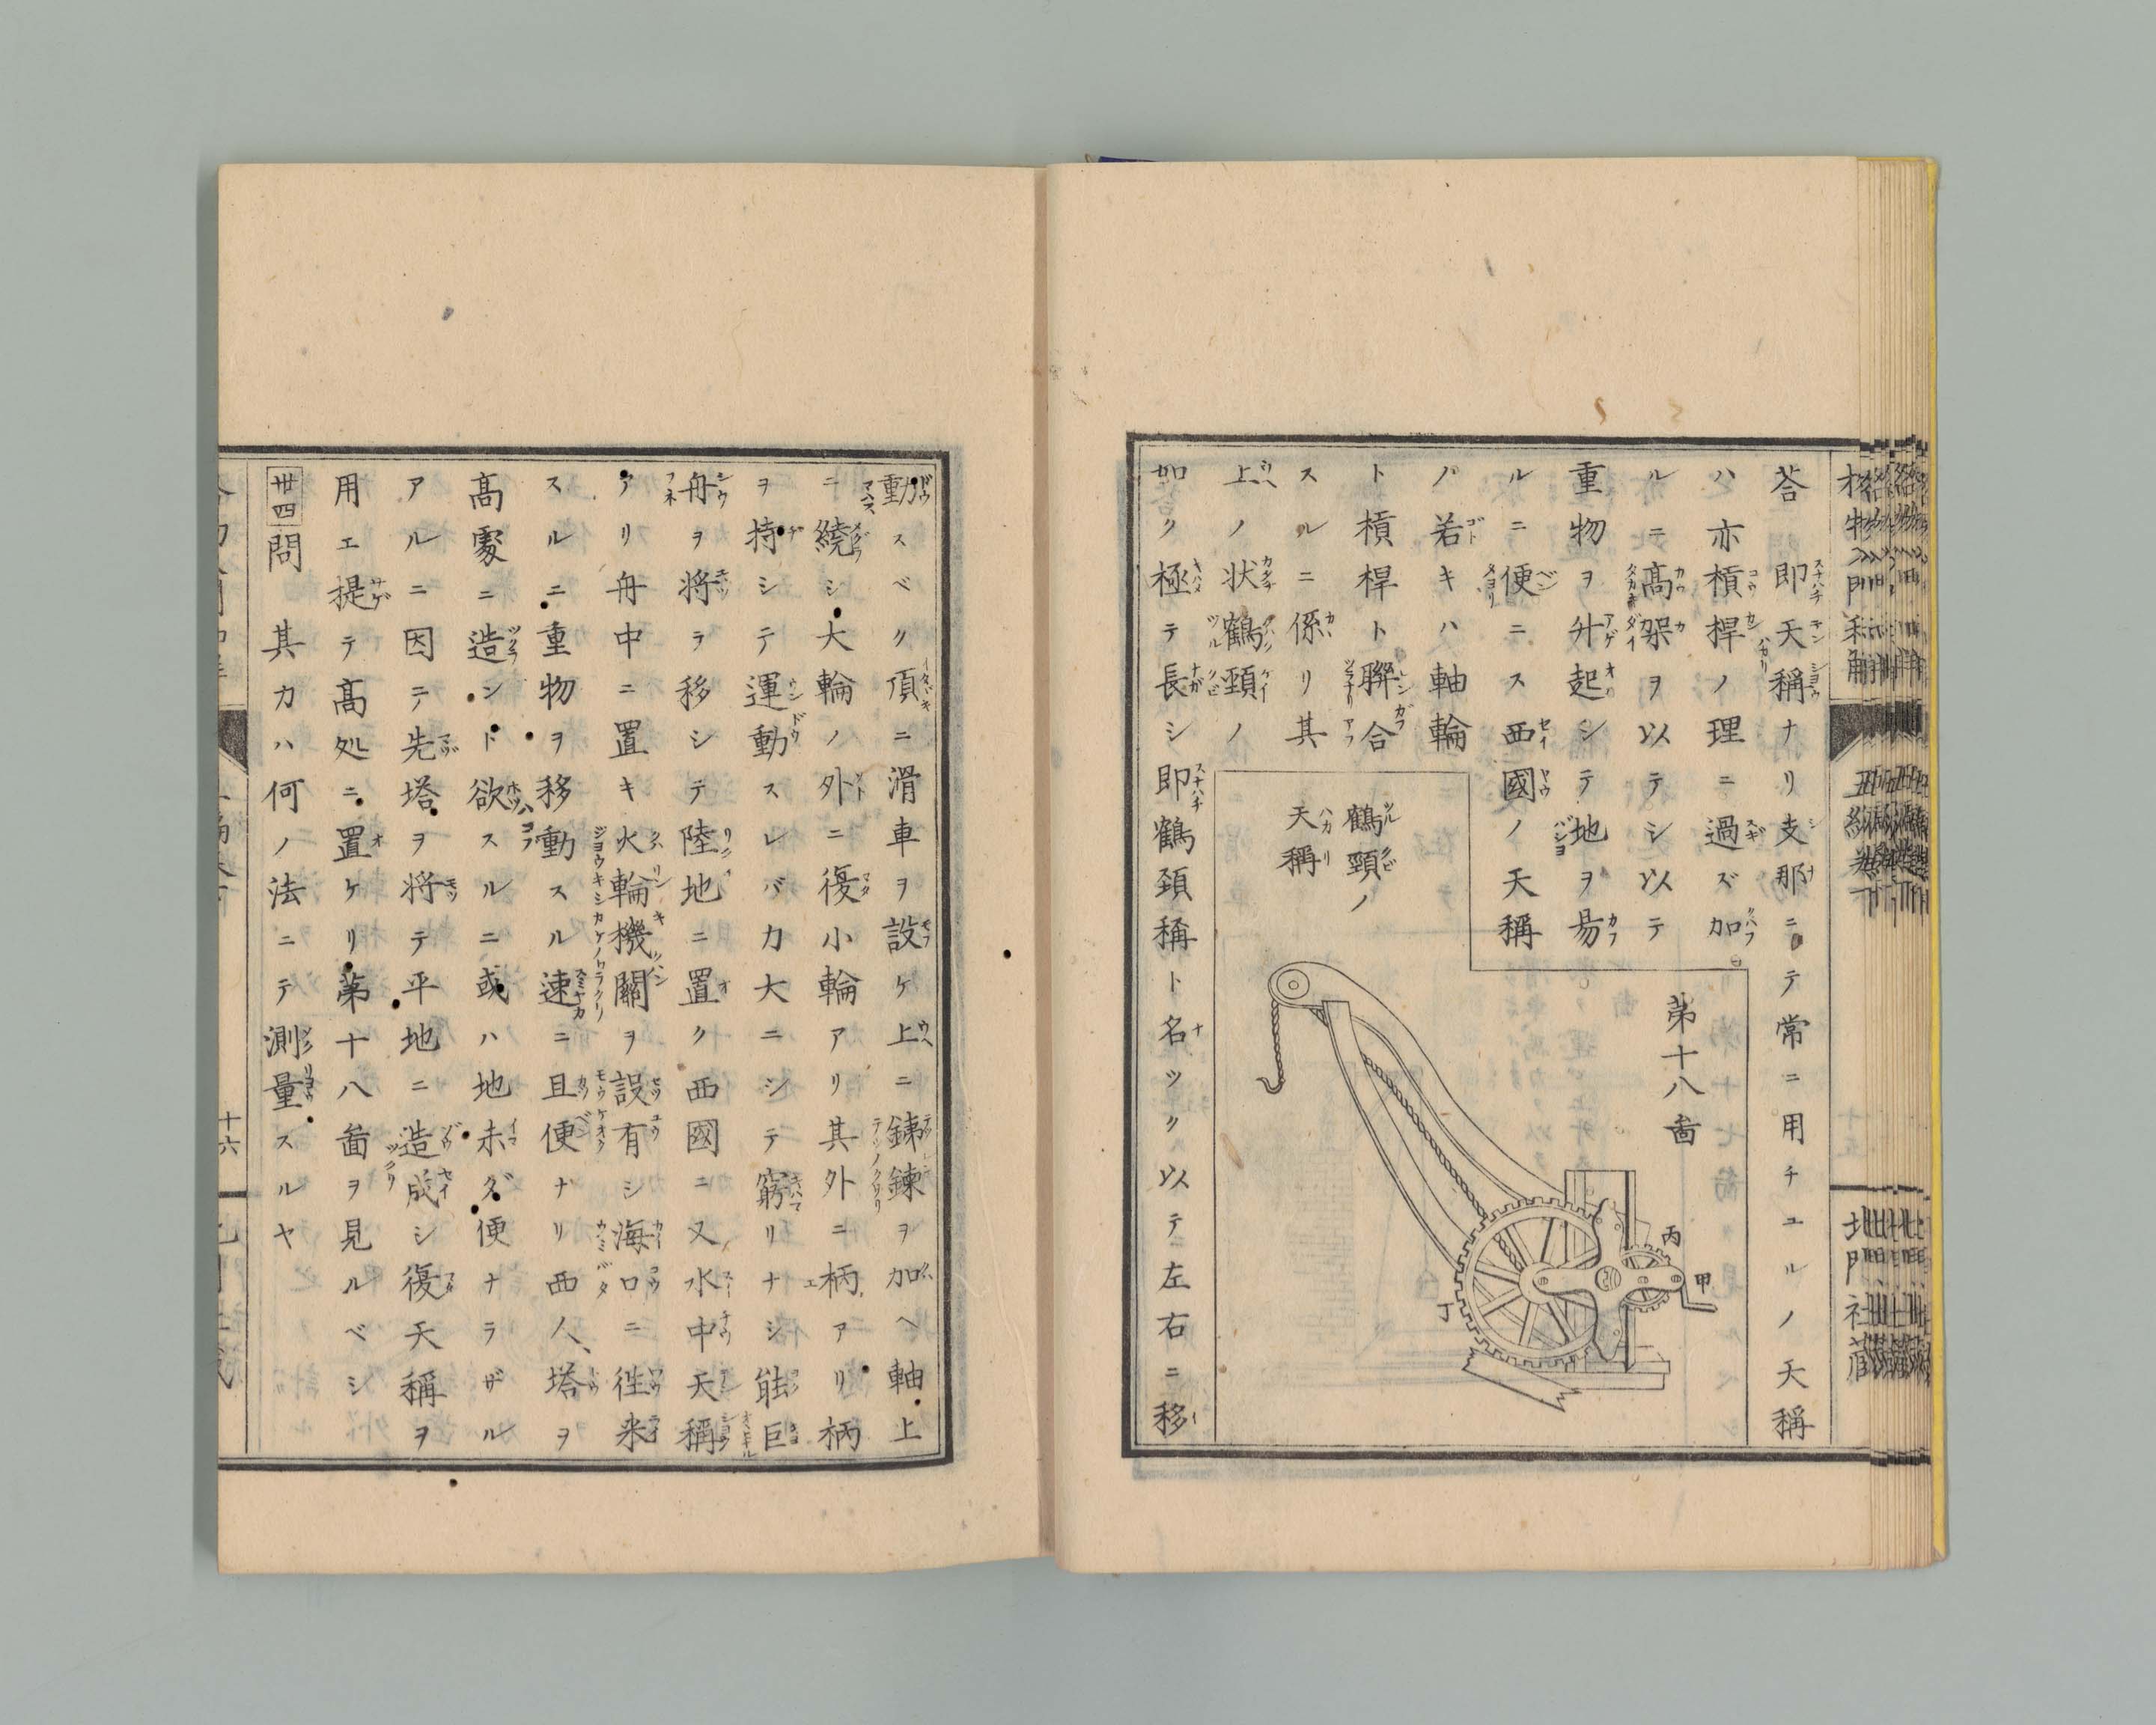 荅 即天稱ナリ支那ニテ常ニ用チユルノ天稱
ハ亦槓桿ノ理ニ過ズ加
ルニ高架ヲ以テシ以テ
重物ヲ升起シテ地ヲ易
ルニ便ニス西國ノ天稱
ノ若キハ軸輪
ト槓桿ト聯合
スルニ係リ其
上ノ状鶴頸ノ
如ク極テ長シ即鶴頚稱ト名ツク以テ左右ニ移
第十八啚
鶴頸ノ
天稱
甲
丙
丁
動スベク頂ニ滑車ヲ設ケ上ニ鍊ヲ加ヘ軸上
ニ繞シ大輪ノ外ニ復小輪アリ其外ニ柄アリ柄
ヲ持シテ運動スレバ力大ニシテ窮リナシ能巨
舟ヲ将ラ移シテ陸地ニ置ク西國ニ又水中天稱
アリ舟中ニ置キ火輪機關ヲ設有シ海口ニ徃来
スルニ重物ヲ移動スル速ニ且便ナリ西人塔ヲ
高處ニ造ント欲スルニ或ハ地未ダ便ナラザル
アルニ因テ先塔ヲ将テ平地ニ造成シ復天稱ヲ
用エ提テ高処ニ置ケリ第十八啚ヲ見ルベシ
丗四問 其力ハ何ノ法ニテ測量スルヤ
十六